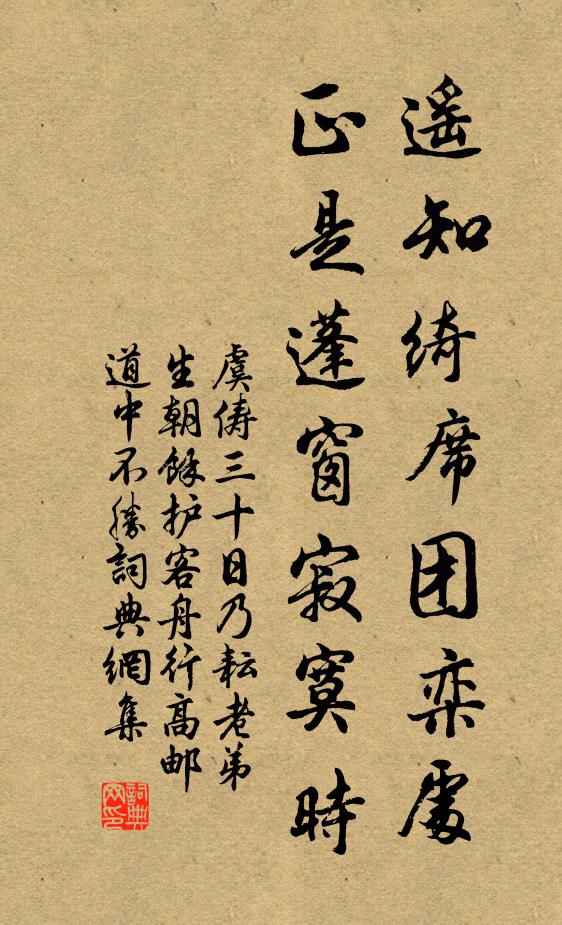 遥知绮席团栾處
正是蓬窗寂寞時
虞俦三十日乃耘老弟
生朝餘护客舟行高邮
道中不勝詞典網集
詞典网印